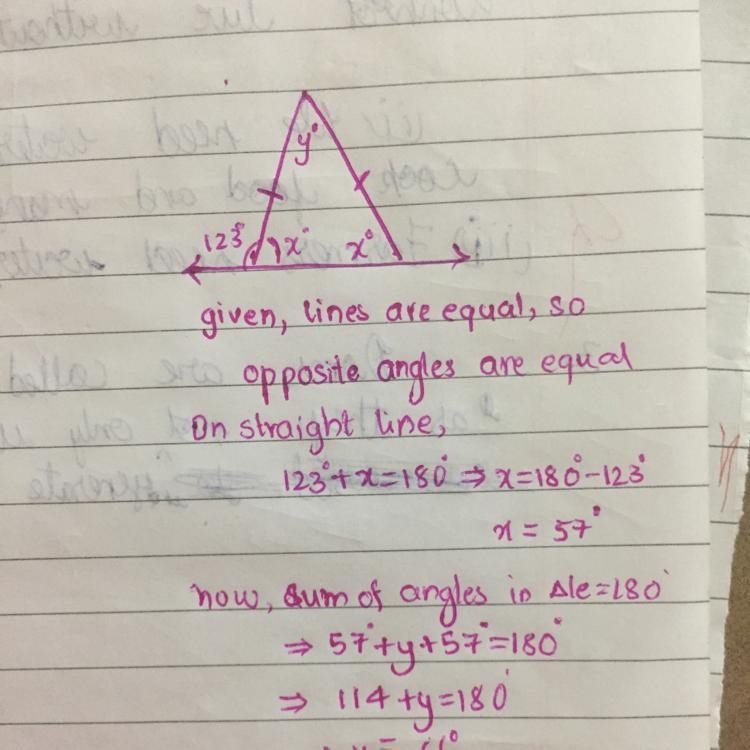 y°
123° x° x°
given, lines are equal, so
opposite angles are equal
On straight line,
123°+x=180° ⇒ x=180°-123°
x = 57°
now, sum of angles in Δle=180°
⇒ 57°+y+57°=180°
⇒ 114+y=180°